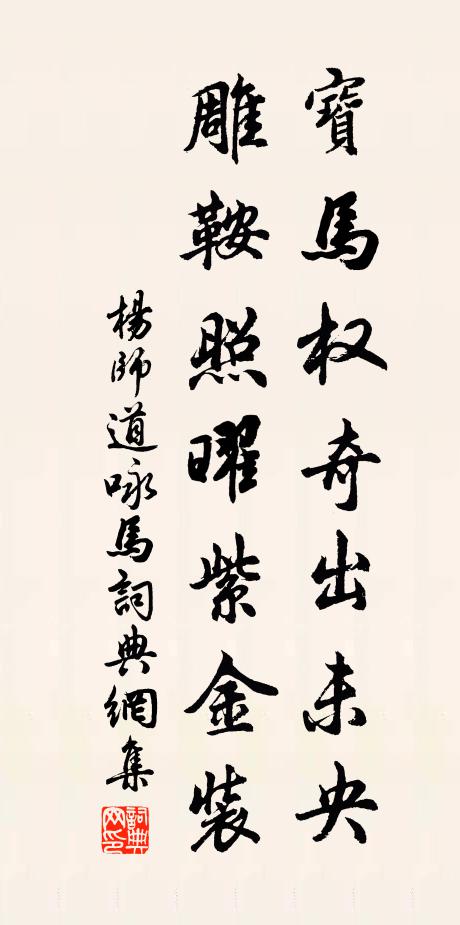 寶馬权奇出未央
雕鞍照曜紫金裝
楊師道咏馬詞典網集
詞典网印